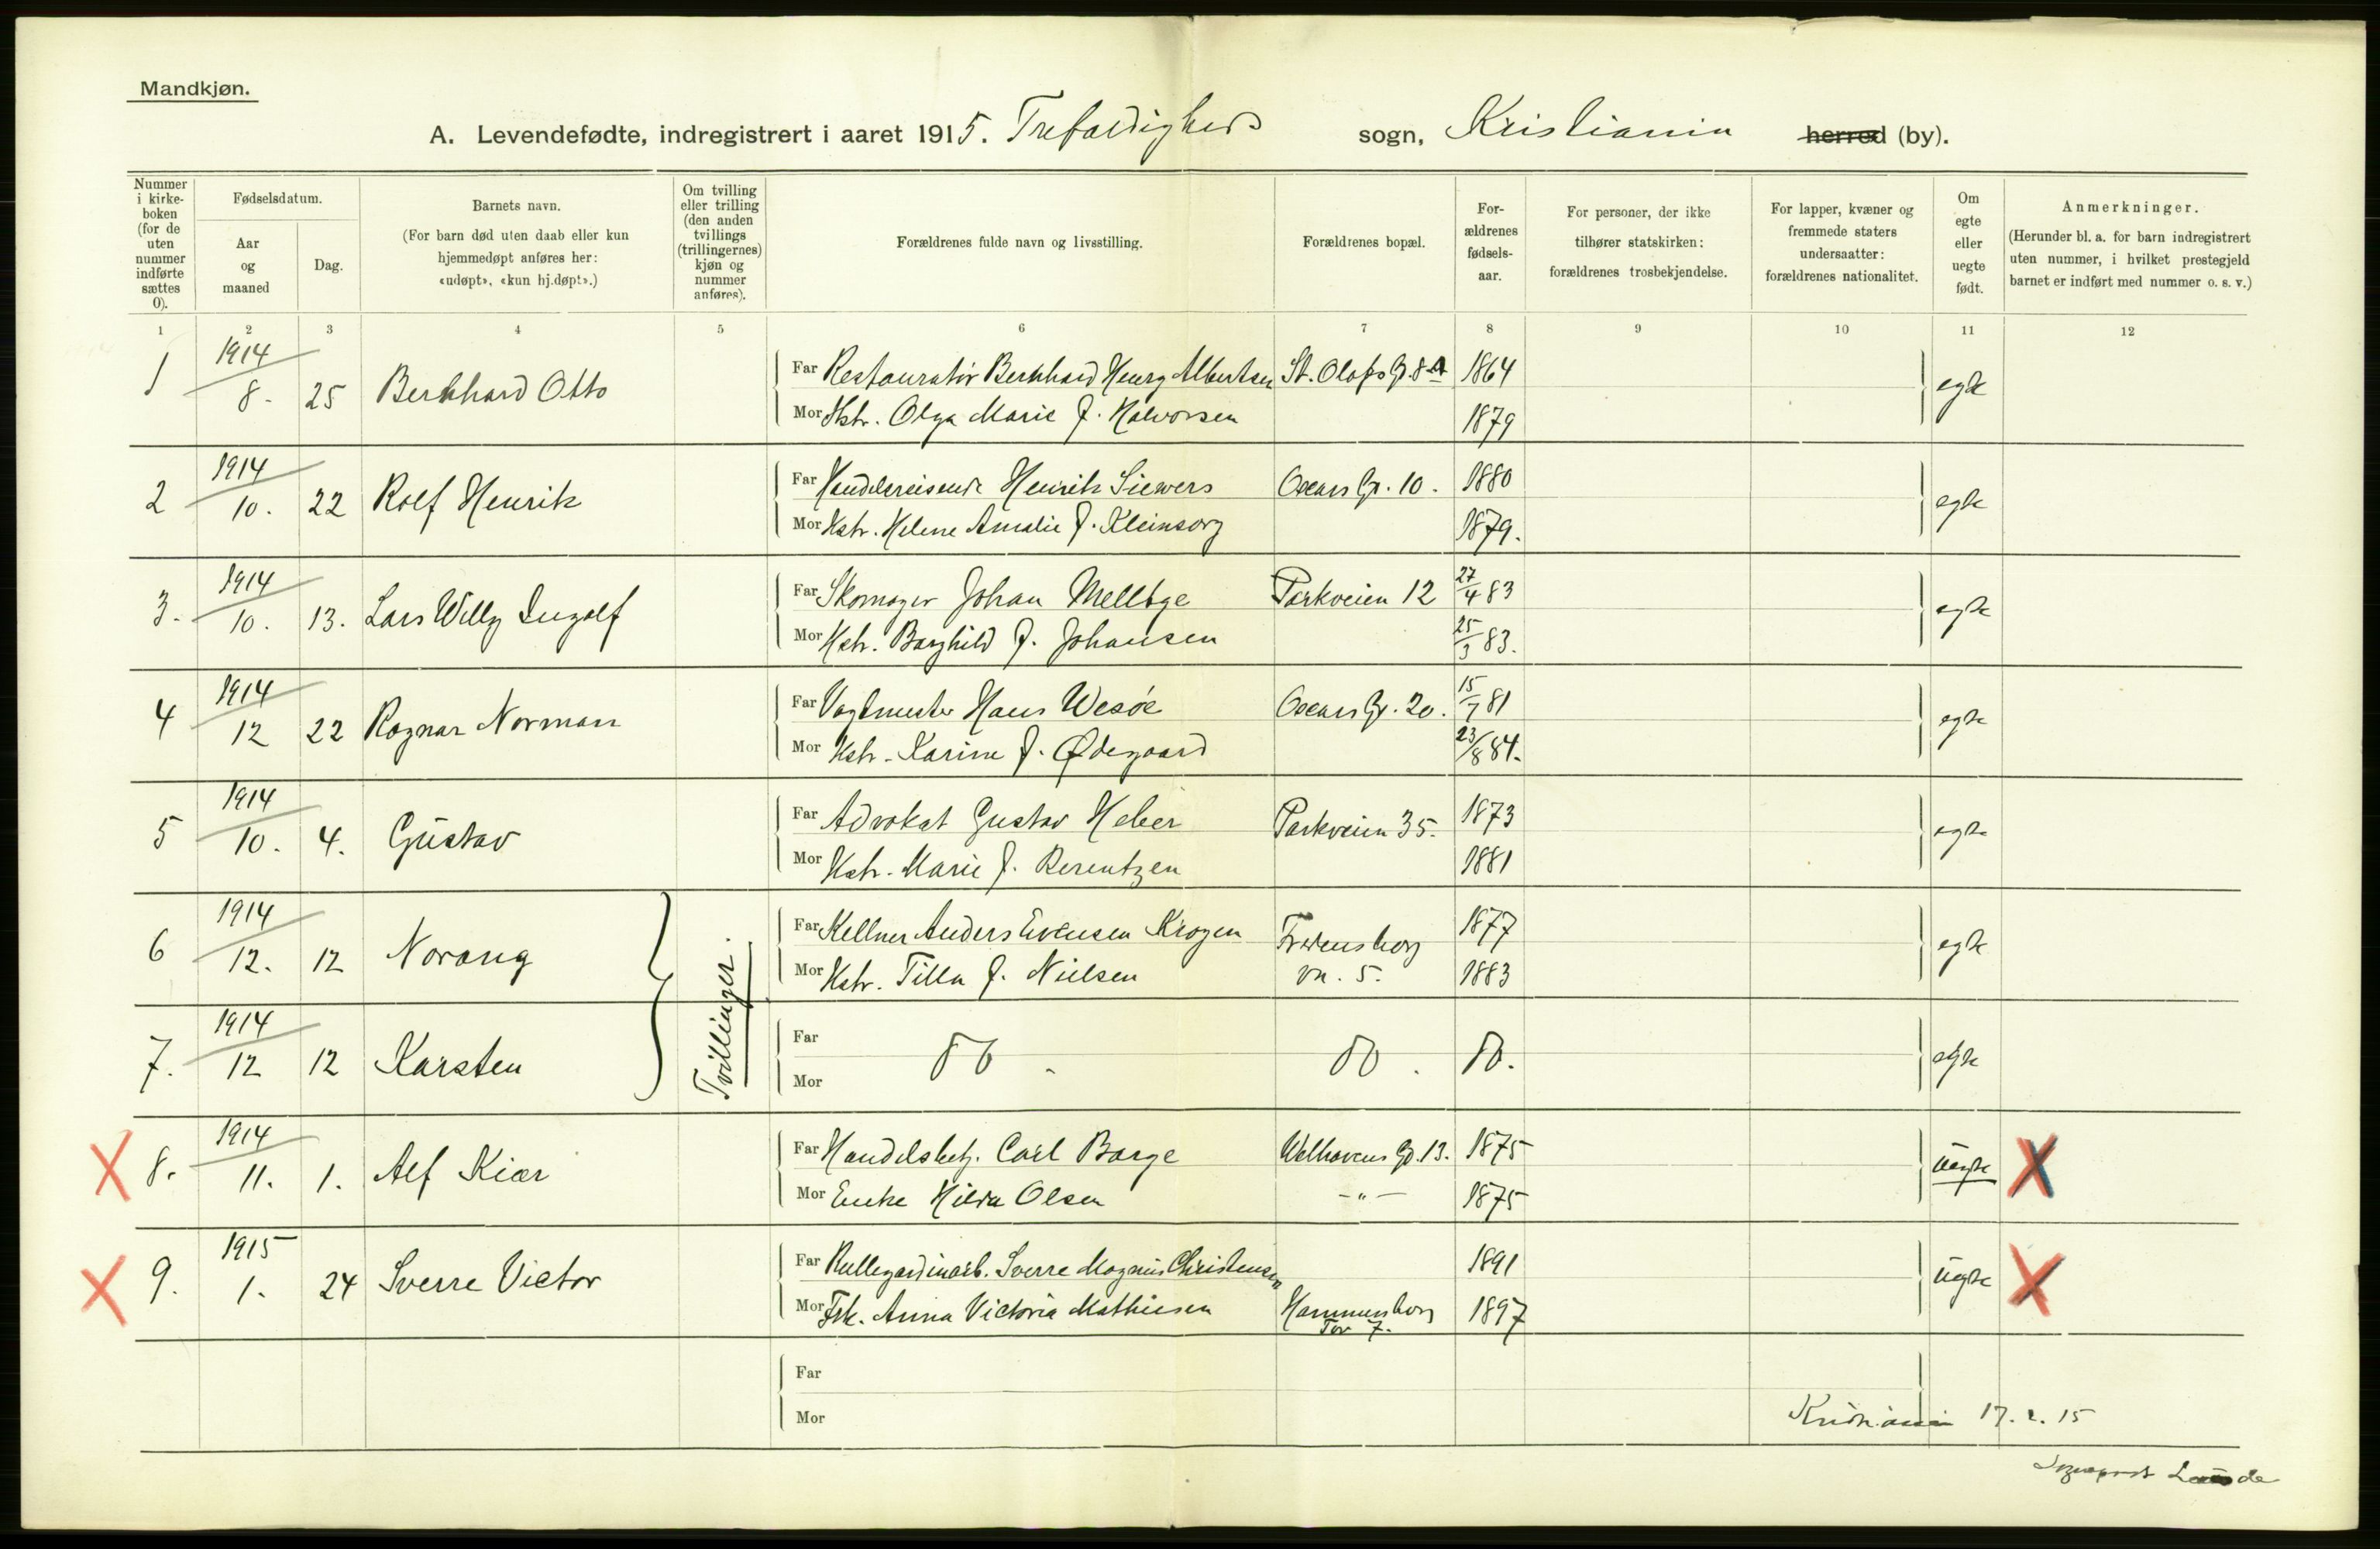 Mandkjøn.
A. Levendefødte, indregistrert i aaret 1915. Trefoldigheds sogn, Kristiania herred (by).
Nummer i kirke-boken (for de uten nummer indførte sættes 0).
Fødselsdatum.
Aar og maaned
Dag.
Barnets navn.
(For barn død uten daab eller kun hjemmedøpt anføres her: «udøpt», «kun hj.døpt».)
Om tvilling eller trilling (den anden tvillings (trillingernes) kjøn og nummer anføres).
Forældrenes fulde navn og livsstilling.
Forældrenes bopæl.
For-ældrenes fødsels-aar.
For personer, der ikke tilhører statskirken: forældrenes trosbekjendelse.
For lapper, kvæner og fremmede staters undersaatter: forældrenes nationalitet.
Om egte eller uegte født.
Anmerkninger.
(Herunder bl. a. for barn indregistrert uten nummer, i hvilket prestegjeld barnet er indført med nummer o. s. v.)
1 2 3 4 5 6 7 8 9 10 11 12
1 1914 8. 25 Bernhard Otto
Far Restauratør Bernhard Henry Albertsen St. Olafs Gd. 8 A 1864 egte
Mor Hstr. Olga Marie f. Halvorsen 1879
2 1914 10. 22 Rolf Henrik
Far Handelsreisende Henrik Siewers Oscars Gt. 10. 1880 egte
Mor Hstr. Helene Amalie f. Kleinsorg 1879.
3. 1914 10. 13. Lars Willy Ingolf
Far Skomager Johan Mellbye Parkveien 12 27/4 83 egte
Mor Hstr. Borghild f. Johansen 25/3 83.
4 1914 12 22 Ragnar Norman
Far Vagtmester Hans Wesöe Oscars Gt. 20. 15/7 81 egte
Mor Hstr. Karine f. Ødegaard 23/8 84.
5 1914 10. 4. Gustav
Far Advokat Gustav Heber Parkveien 35. 1873 egte
Mor Hstr. Marie f. Berentzen 1881
6 1914 12. 12 Norang Tvillinger.
Far Kellner Anders Evensen Krogen Fredensborg 1877 egte
Mor Hstr. Tilla f. Nielsen vn. 5. 1883
7. 1914 12 12 Karsten
Far do do. do. egte
Mor
8. 1914 11. 1. Alf Kiær
Far Handelsbetj. Carl Borge Welhavens Gd. 13. 1875 uegte
Mor Enke Hilda Olsen -"- 1875
9. 1915 1. 24 Sverre Victor
Far Rullegardinarb. Sverre Magnus Christensen 1891 uegte
Mor Frk. Anna Victoria Mathiesen Hammersborg Tor 7. 1897
Far
Mor
Kristiania 17. 2. 15
Sogneprest